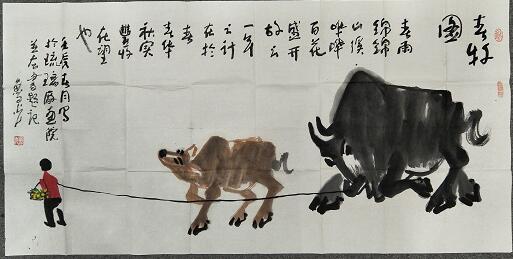 春牧
图
春雨
绵绵
山溪
哗哗
百花
盛开
故云
一年
之计
在于
春
春华
秋实
豐收
在望
也
壬辰春月写
於琉璃厰画院